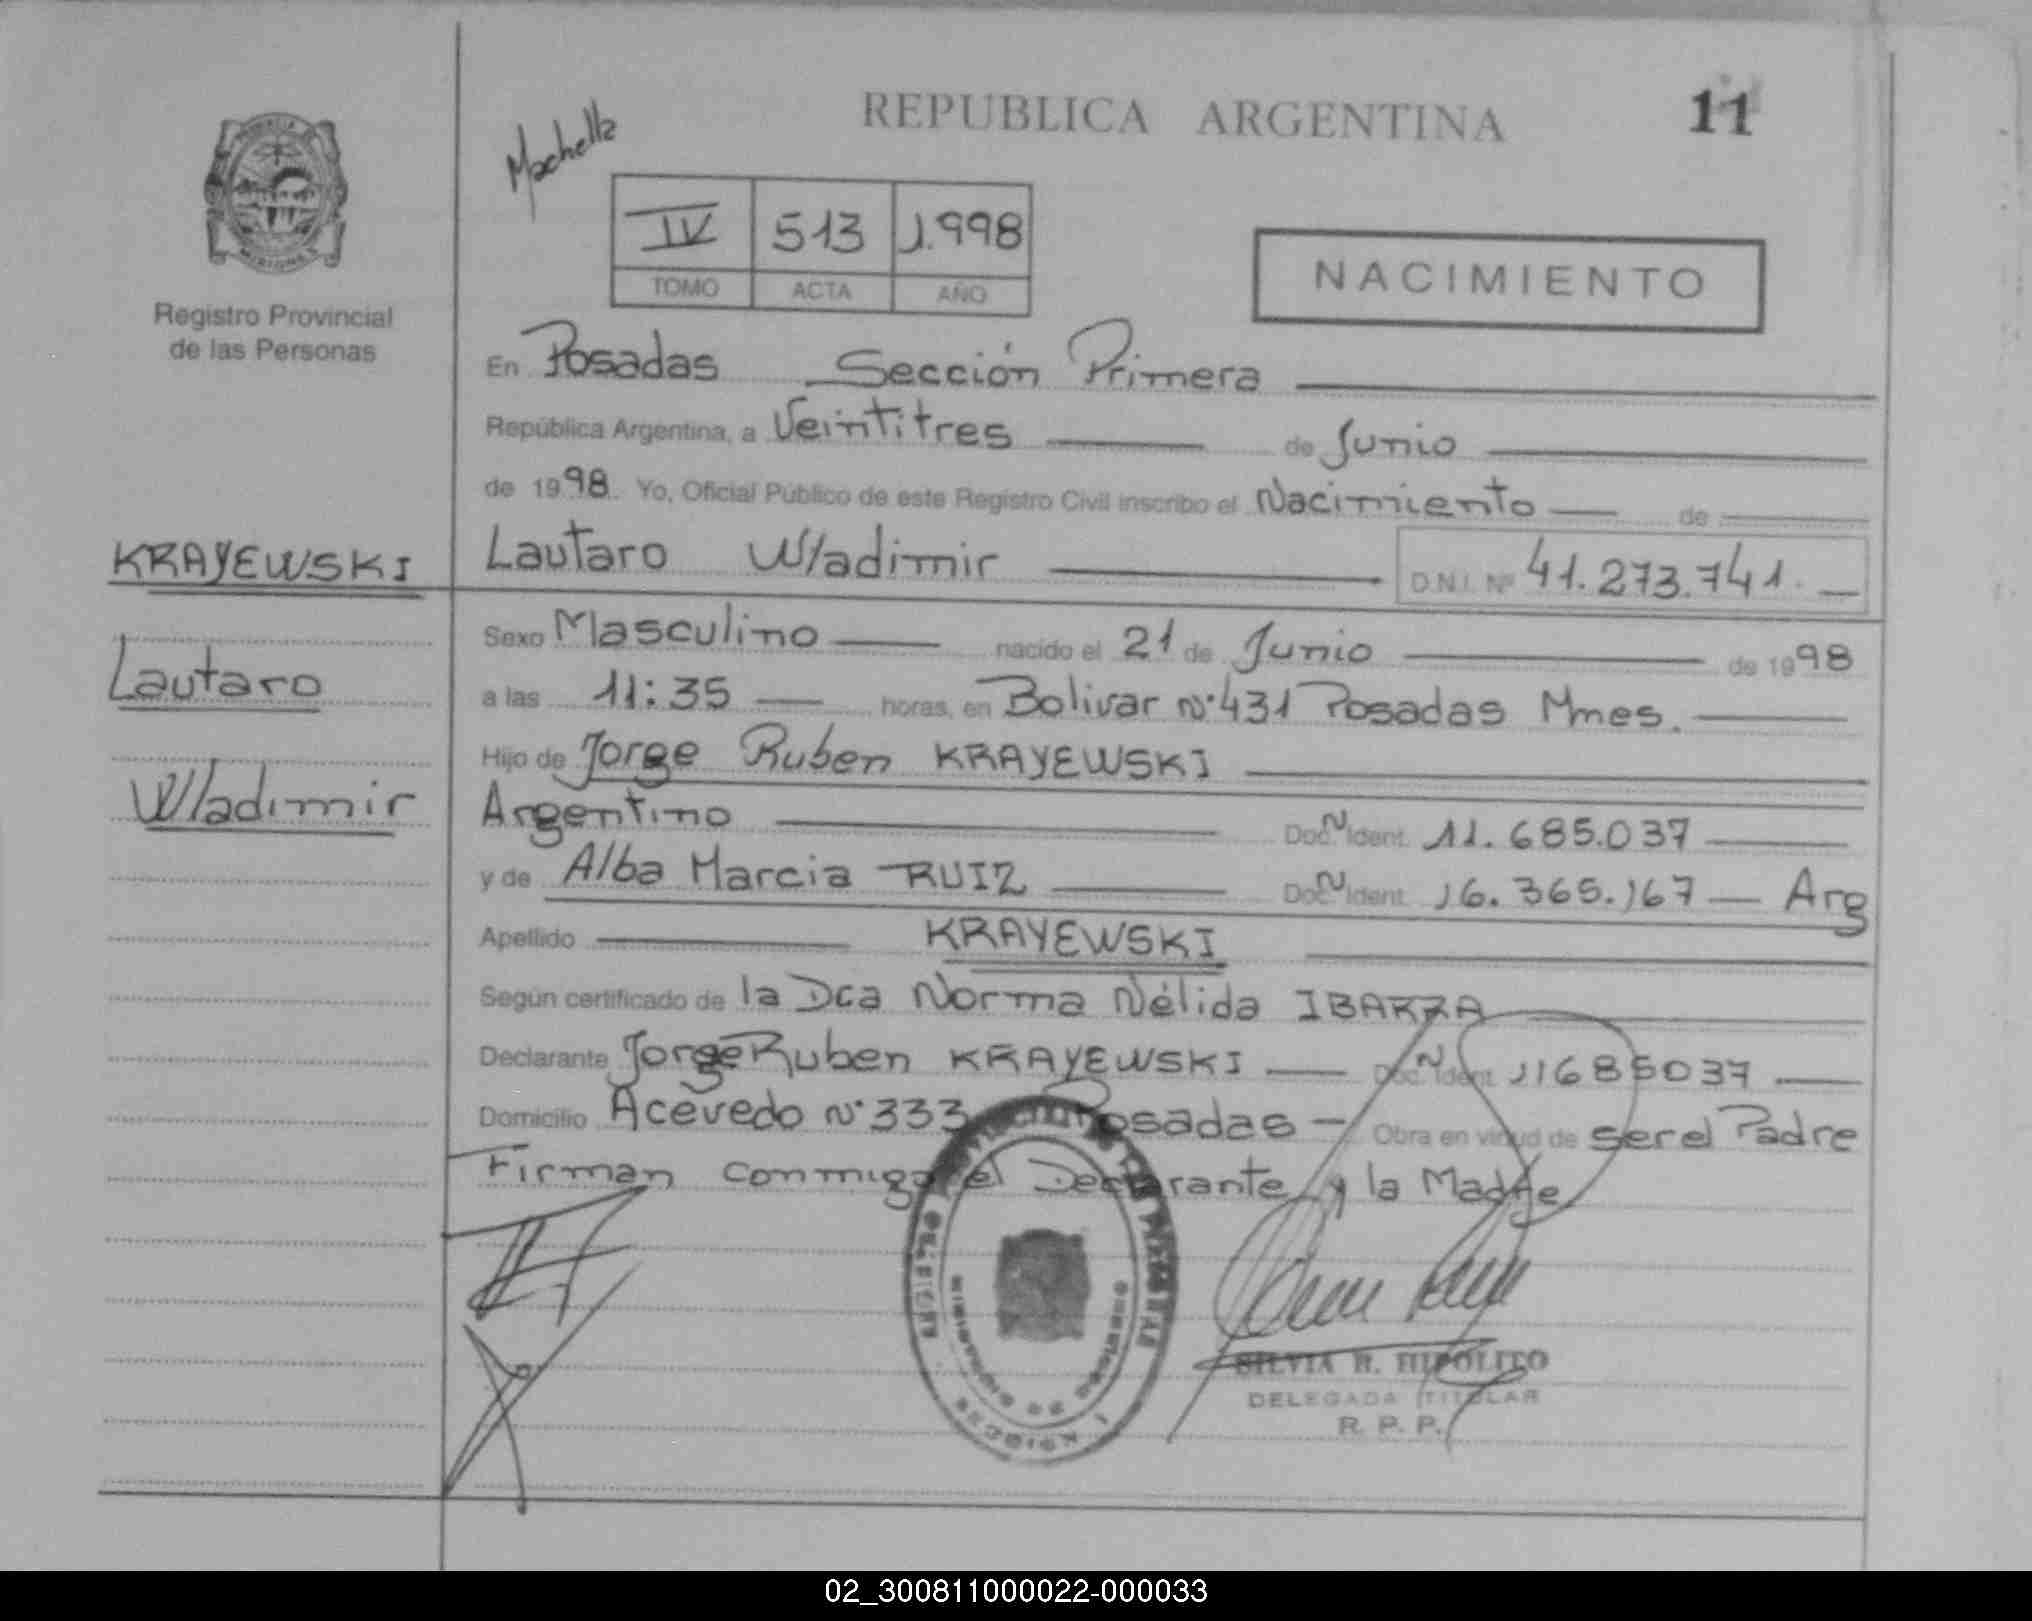 REPUBLICA ARGENTINA
11
IV 513 1.998
TOMO ACTA AÑO
NACIMIENTO
Registro Provincial
de las Personas
En Posadas Sección Primera
República Argentina, a Veintitres de Junio
de 1998. Yo, Oficial Público de este Registro Civil inscribo el Nacimiento de
KRAYEWSKI
Lautaro
Wladimir
Lautaro Wladimir D.N.I. Nº 41.273.741.
Sexo Masculino nacido el 21 de Junio de 1998
a las 11:35 horas, en Bolivar Nº 431 Posadas Mnes.
Hijo de Jorge Ruben KRAYEWSKI
Argentino Doc. N Ident. 11.685.037
y de Alba Marcia RUIZ Doc. N Ident. 16.365.167 Arg
Apellido KRAYEWSKI
Según certificado de la Dca Norma Nélida IBARRA
Declarante Jorge Ruben KRAYEWSKI Doc. N Ident. 11685037
Domicilio Acevedo Nº 333 Posadas Obra en virtud de ser el Padre
Firman conmigo el Declarante y la Madre
SILVIA R. HIPOLITO
DELEGADA TITULAR
R. P. P.
02_300811000022-000033